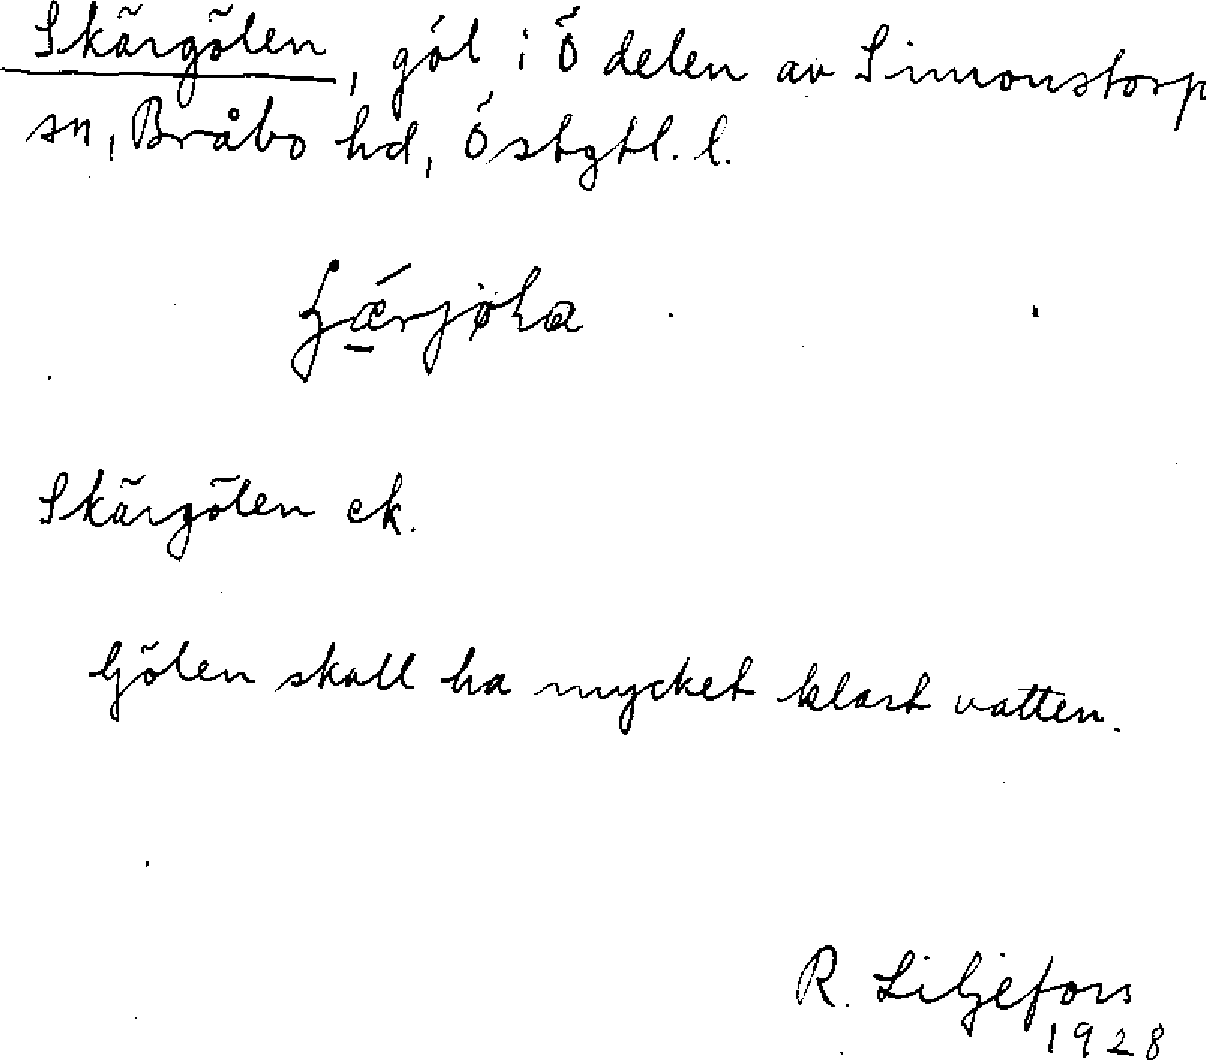 Skärgölen, göl i Ö delen av Simonstorp
sn, Bråbo hd, Östgtl. l.
Skärgölen ek.
Gölen skall ha mycket klart vatten.
R. Liljefors
1928